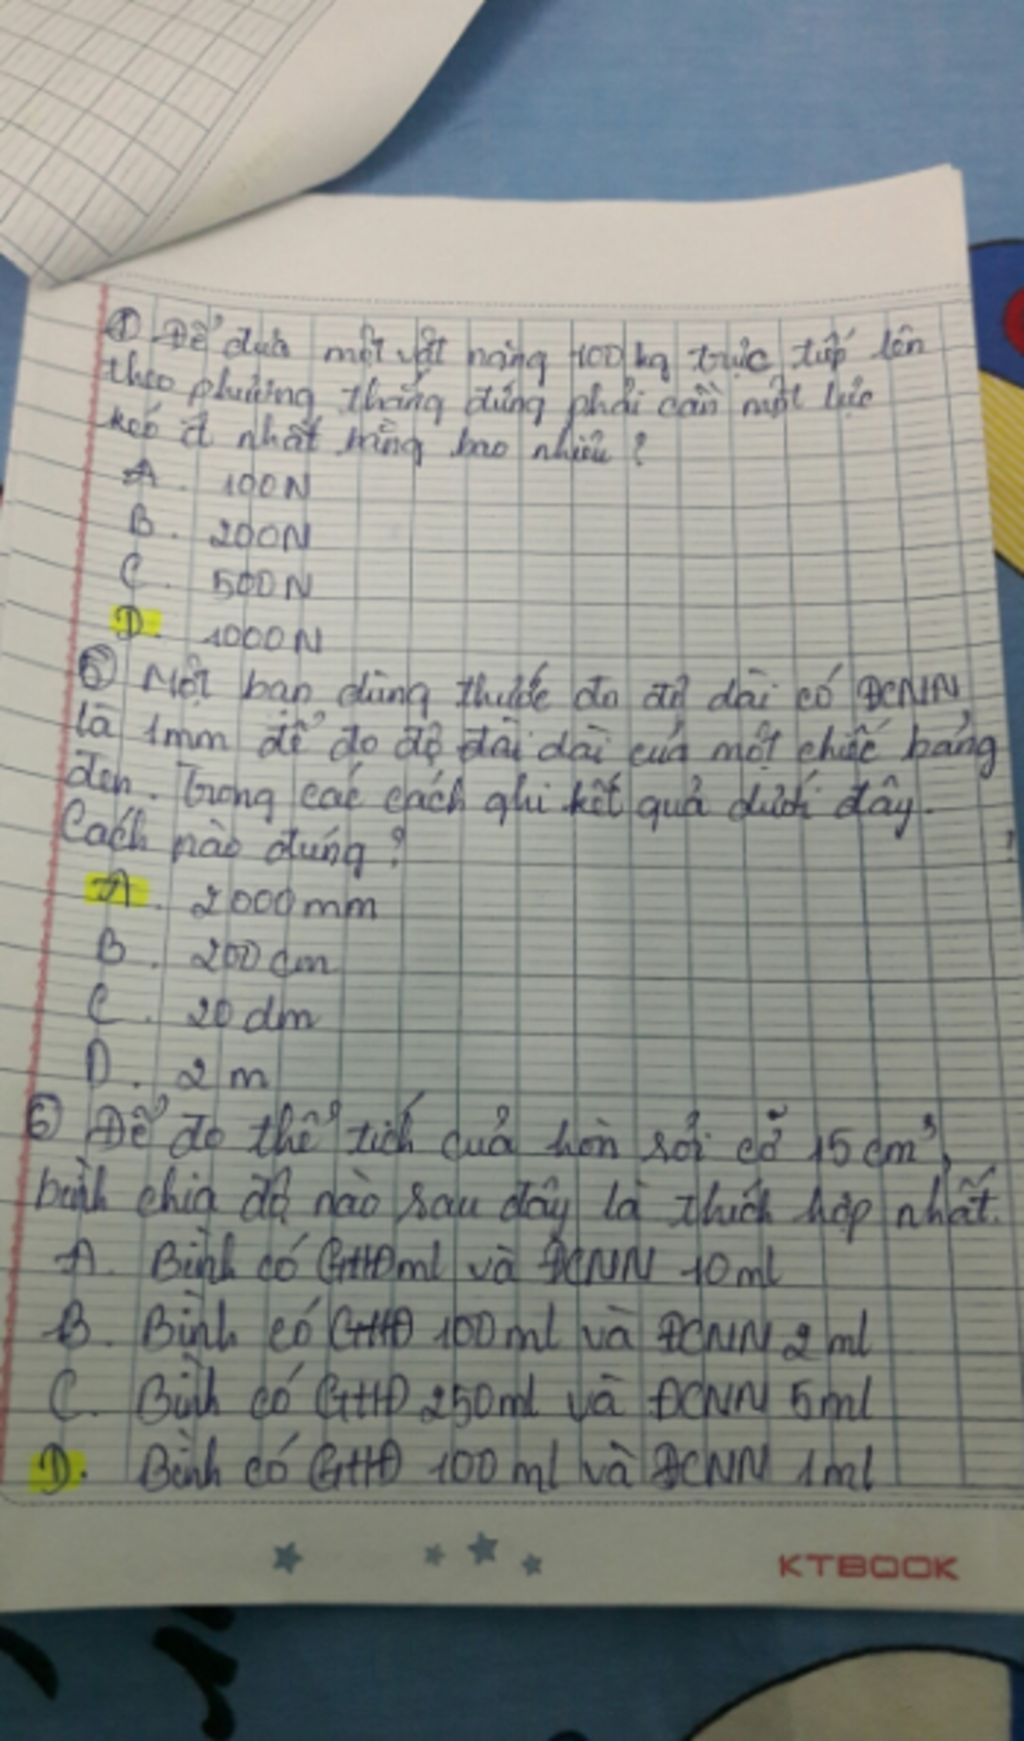 ① Để đưa một vật nặng 100kg trực tiếp lên
theo phương thẳng đứng phải cần một lực
kéo ít nhất bằng bao nhiêu?
A. 100N
B. 200N
C. 500N
D. 1000N
⑤ Một bạn dùng thước đo độ dài có ĐCNN
là 1mm để đo độ dài dài của một chiếc bảng
đen. Trong các cách ghi kết quả dưới đây.
Cách nào đúng?
A. 2000mm
B. 200cm
C. 20dm
D. 2m
⑥ Để đo thể tích quả hòn sỏi cỡ 15cm³,
bình chia độ nào sau đây là thích hợp nhất.
A. Bình có GHĐml và ĐCNN 10ml
B. Bình có GHĐ 100ml và ĐCNN 2ml
C. Bình có GHĐ 250ml và ĐCNN 5ml
D. Bình có GHĐ 100ml và ĐCNN 1ml
KTBOOK